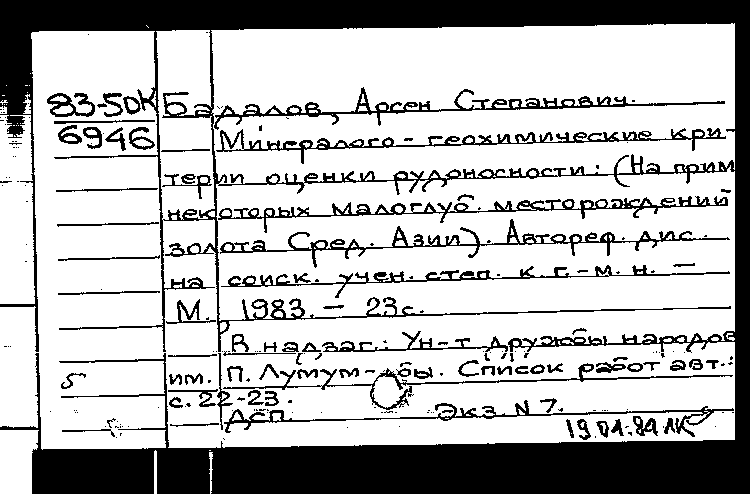 83-5ДК Бадалов, Арсен Степанович.
6946 Минералого-геохимические кри-
терии оценки рудоносности: (На прим
некоторых малоглуб. месторождений
золота Сред. Азии). Автореф. дис.
на соиск. учен. степ. к. г.-м. н. —
М. 1983. — 23с.
В надзаг.: Ун-т дружбы народов
5 им. П. Лумум-бы. Список работ авт.:
с. 22-23.
ДСП. Экз. N 7.
19.01.84